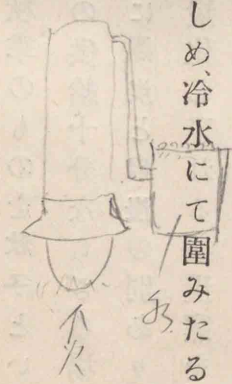 しめ、冷水にて圍みたる
水
火